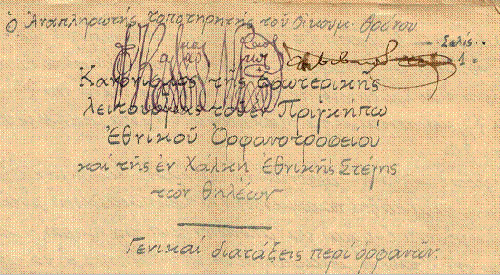 Ὁ Ἀναπληρωτὴς Τοποτηρητὴς τοῦ Οἰκουμ. Θρόνου
Σελίς
1
Κανονισμὸς τῆς ἐσωτερικῆς
λειτουργίας τοῦ ἐν Πριγκήπῳ
Ἐθνικοῦ Ὀρφανοτροφείου
καὶ τῆς ἐν Χάλκῃ Ἐθνικῆς Στέγης
τῶν θηλέων
Γενικαὶ διατάξεις περὶ ὀρφανῶν.